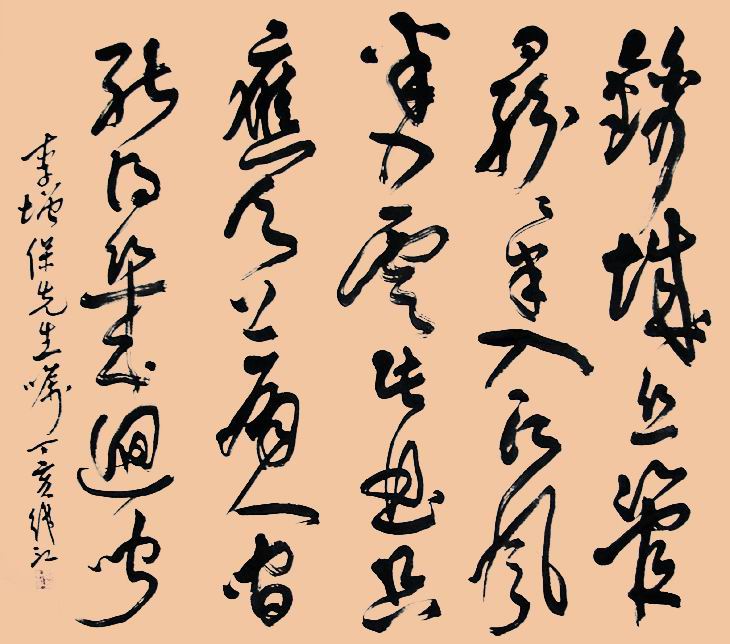 錦城丝管
日紛〻半入江風
半入雲此曲只
應天上有人間
能得幾迴聞
李保先生嘱 丁亥江